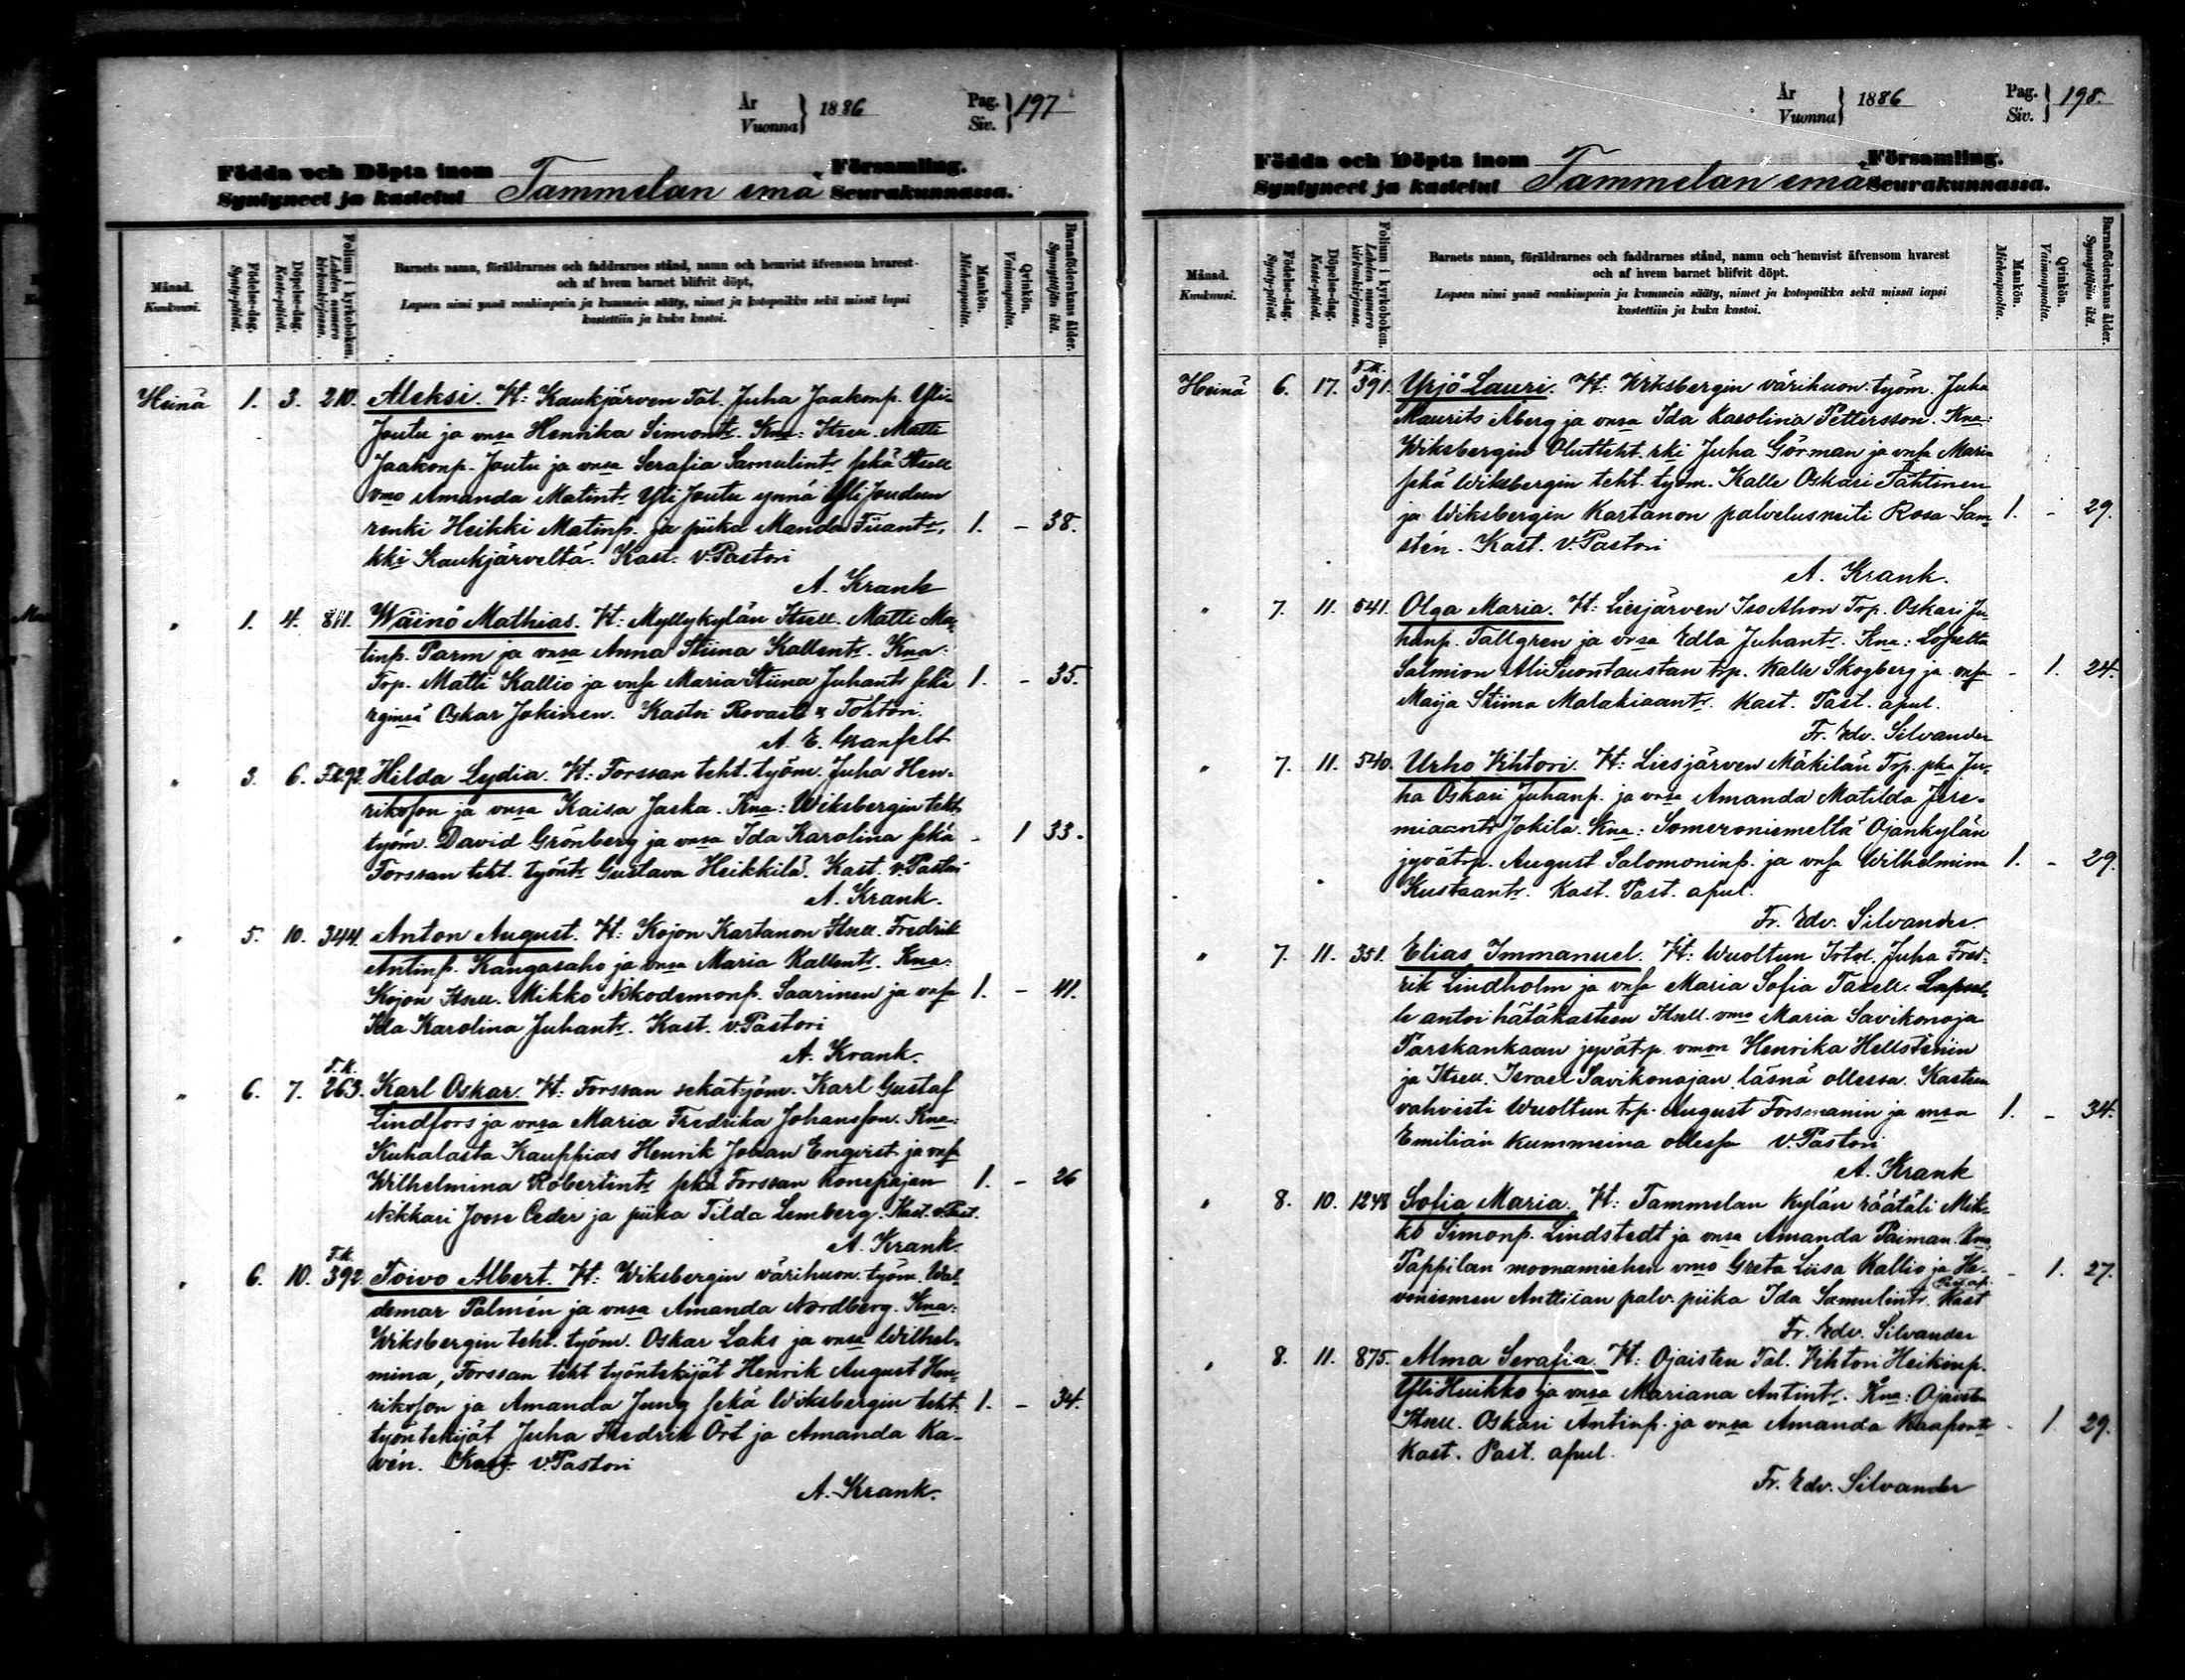 År
Vuonna } 1886
Pag.
Siv. } 197
Födda och Döpta inom Församling.
Syntyneet ja kastetut Tammelan emä Seurakunnassa.
Månad. Kuukausi.
Födelse-dag. Synty-päivä.
Döpelse-dag. Kaste-päivä.
Folium i kyrkoboken. Lehden numero kirkonkirjassa.
Barnets namn, föräldrarnes och faddrarnes stånd, namn och hemvist äfvensom hvarest
och af hvem barnet blifvit döpt,
Lapsen nimi ynnä vanhimpain ja kummein sääty, nimet ja kotopaikka sekä missä lapsi
kastettiin ja kuka kastoi.
Mankön. Miehenpuolta.
Qvinkön. Vaimonpuolta.
Barnaföderskans ålder. Synnyttäjän ikä.
Heinä 1. 3. 210. Aleksi. Vt: Kaukjärven Tal. Juha Jaakonp. Yli-
Joutu ja vnsa Henrika Simontr. Kna: Itsell. Matti
Jaakonp. Joutu ja vnsa Serafia Samulintr sekä Itsell
vmo Amanda Matintr Yli Joutu ynnä Yli Joudun
renki Heikki Matinp. ja piika Manda 1. - 38.
Kaukjärveltä. Kast. v. Pastori
A. Krank
" 1. 4. 811. Wäinö Mathias. Vt: Myllykylän Itsell. Matti Ma-
tinp. Parm ja vnsa Anna Stiina Kallentr. Kna:
Trp. Matti Kallio ja vnsa Maria Stiina Juhantr sekä 1. - 35.
Oskar Jokinen. Kastoi Rovasti & Tohtori
A. E. Granfelt
" 3. 6. F.k. 292. Hilda Lydia. Vt: Forssan teht. työm. Juha Hen-
rikson ja vnsa Kaisa Jaska. Kna: Wiksbergin teht.
työm. David Grönberg ja vnsa Ida Karolina sekä - 1 33.
Forssan teht. työntr Gustava Heikkilä. Kast. v. Pastori
A. Krank.
" 5. 10. 344. Anton August. Vt: Kojon Kartanon Itsell. Fredrik
Antinp. Kangasaho ja vnsa Maria Kallentr. Kna:
Kojon Itsell. Mikko Nikodemonp. Saarinen ja vnsa 1. - 41.
Ida Karolina Juhantr. Kast. v. Pastori
A. Krank.
" 6. 7. F.k. 263. Karl Oskar. Vt: Forssan sekatyöm. Karl Gustaf
Lindfors ja vnsa Maria Fredrika Johansson. Kna:
Kuhalasta Kauppias Henrik Johan Enqvist ja vnsa
Wilhelmina Robertintr sekä Forssan konepajan 1. - 26
Nikkari Joose Ceder ja piika Tilda Lemberg. Kast. v. Past.
A. Krank.
" 6. 10. F.k. 392. Toivo Albert. Vt: Wiksbergin värihuon. työm. Wal-
demar Palmén ja vnsa Amanda Nordberg. Kna:
Wiksbergin teht. työm. Oskar Laks ja vnsa Wilhel-
mina, Forssan teht työntekijät Henrik August Hen-
rikson ja Amanda Jung sekä Wiksbergin teht. 1. - 34.
työntekijät Juha Fredrik Ört ja Amanda Ka-
vén. Kast. v. Pastori
A. Krank.
År
Vuonna } 1886
Pag.
Siv. } 198.
Födda och Döpta inom Församling.
Syntyneet ja kastetut Tammelan emä Seurakunnassa.
Månad. Kuukausi.
Födelse-dag. Synty-päivä.
Döpelse-dag. Kaste-päivä.
Folium i kyrkoboken. Lehden numero kirkonkirjassa.
Barnets namn, föräldrarnes och faddrarnes stånd, namn och hemvist äfvensom hvarest
och af hvem barnet blifvit döpt.
Lapsen nimi ynnä vanhimpain ja kummein sääty, nimet ja kotopaikka sekä missä lapsi
kastettiin ja kuka kastoi.
Mankön. Miehenpuolta.
Qvinkön. Vaimonpuolta.
Barnaföderskans ålder. Synnyttäjän ikä.
Heinä 6. 17. F.k. 391. Yrjö Lauri. Vt: Wiksbergin värihuon. työm. Juha
Maurits Åberg ja vnsa Ida Karolina Pettersson. Kna:
Wiksbergin Olutteht. rki Juha Görman ja vnsa Maria
sekä Wiksbergin teht. työm. Kalle Oskari Tähtinen
ja Wiksbergin Kartanon palvelusneiti Rosa Sam- 1. - 29.
stén. Kast. v. Pastori
A. Krank.
" 7. 11. 541. Olga Maria. Vt: Liesjärven Iso Ahon Trp. Oskari Ju-
hanp. Tallgren ja vnsa Edla Juhantr. Kna: Lopelta
Salmion Ali Suontaustan trp. Kalle Skogberg ja vnsa - 1. 24.
Maija Stiina Malakiaantr. Kast. Past. apul.
Fr. Edv. Silvander
" 7. 11. 540. Urho Vihtori. Vt: Liesjärven Mäkilän Trp. pka Ju-
ha Oskari Juhanp. ja vnsa Amanda Matilda Jere-
miaantr Jokila. Kna: Someroniemeltä Ojankylän
jyvätrp. August Salomoninp. ja vnsa Wilhelmina 1. - 29.
Kustaantr. Kast. Past. apul.
Fr. Edv. Silvander.
" 7. 11. 351. Elias Immanuel. Vt: Wuoltun Irtol. Juha Fred-
rik Lindholm ja vnsa Maria Sofia Tasell. Lapsel-
le antoi hätäkasteen Itsell. vmo Maria Savikonoja
Parskankaan jyvätrp. vmon Henrika Hellsténin
ja Itsell. Israel Savikonojan läsnä ollessa. Kasteen
vahvisti Wuoltun trp. August Forsmanin ja vnsa 1. - 34.
Emilian kummeina ollessa v. Pastori
A. Krank
" 8. 10. 1248 Sofia Maria. Vt: Tammelan kylän räätäli Mik-
ko Simonp. Lindstedt ja vnsa Amanda Paiman. Kna:
Pappilan moonamiehen vmo Greta Liisa Kallio ja He- - 1. 27.
veniemen Anttilan palv. piika Ida Samulintr. Kast Past. ap.
Fr. Edv. Silvander
" 8. 11. 875. Alma Serafia. Vt: Ojaisten Tal. Vihtori Heikinp.
Yli Huikko ja vnsa Mariana Antintr. Kna: Ojaisten
Itsell. Oskari Antinp. ja vnsa Amanda Kaapontr - 1. 29.
Kast. Past. apul.
Fr. Edv. Silvander